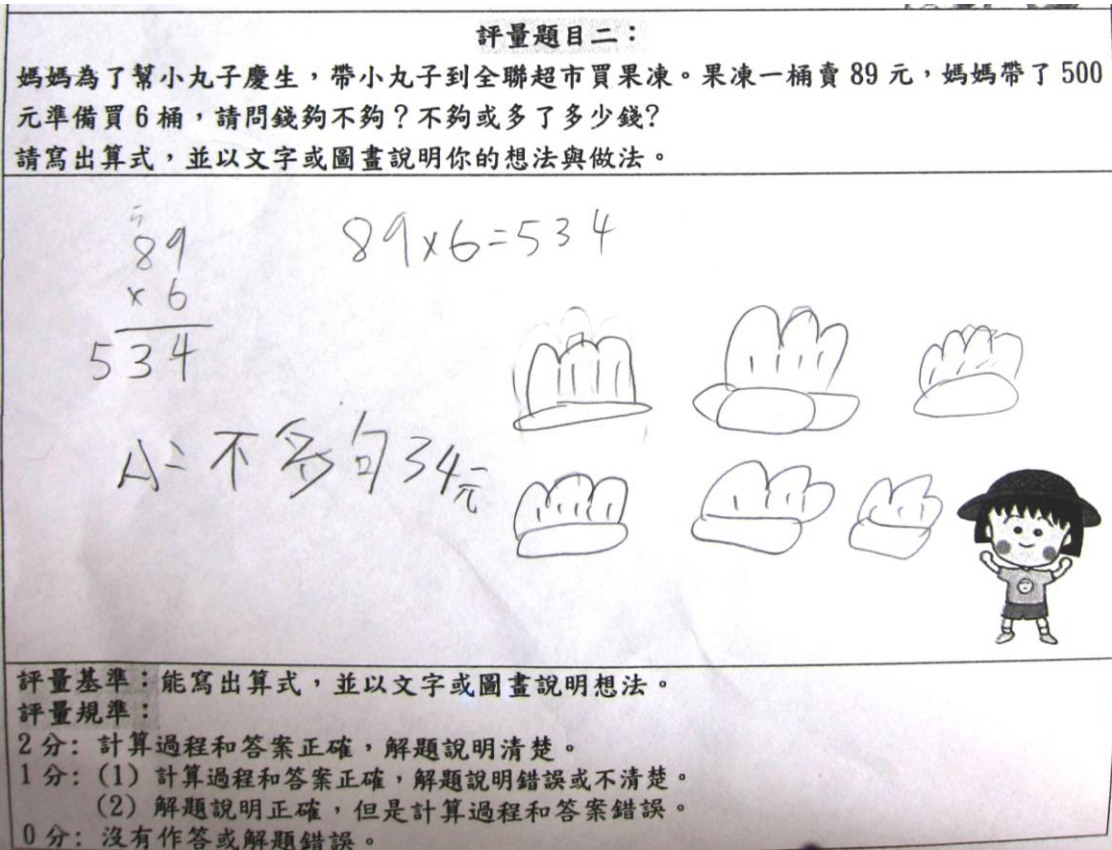 評量題目二：
媽媽為了幫小丸子慶生，帶小丸子到全聯超市買果凍。果凍一桶賣 89 元，媽媽帶了 500
元準備買 6 桶，請問錢夠不夠？不夠或多了多少錢?
請寫出算式，並以文字或圖畫說明你的想法與做法。
5
89
x 6
534
89x6=534
A= 不夠34元
評量基準：能寫出算式，並以文字或圖畫說明想法。
評量規準：
2 分: 計算過程和答案正確，解題說明清楚。
1 分: (1) 計算過程和答案正確，解題說明錯誤或不清楚。
(2) 解題說明正確，但是計算過程和答案錯誤。
0 分: 沒有作答或解題錯誤。